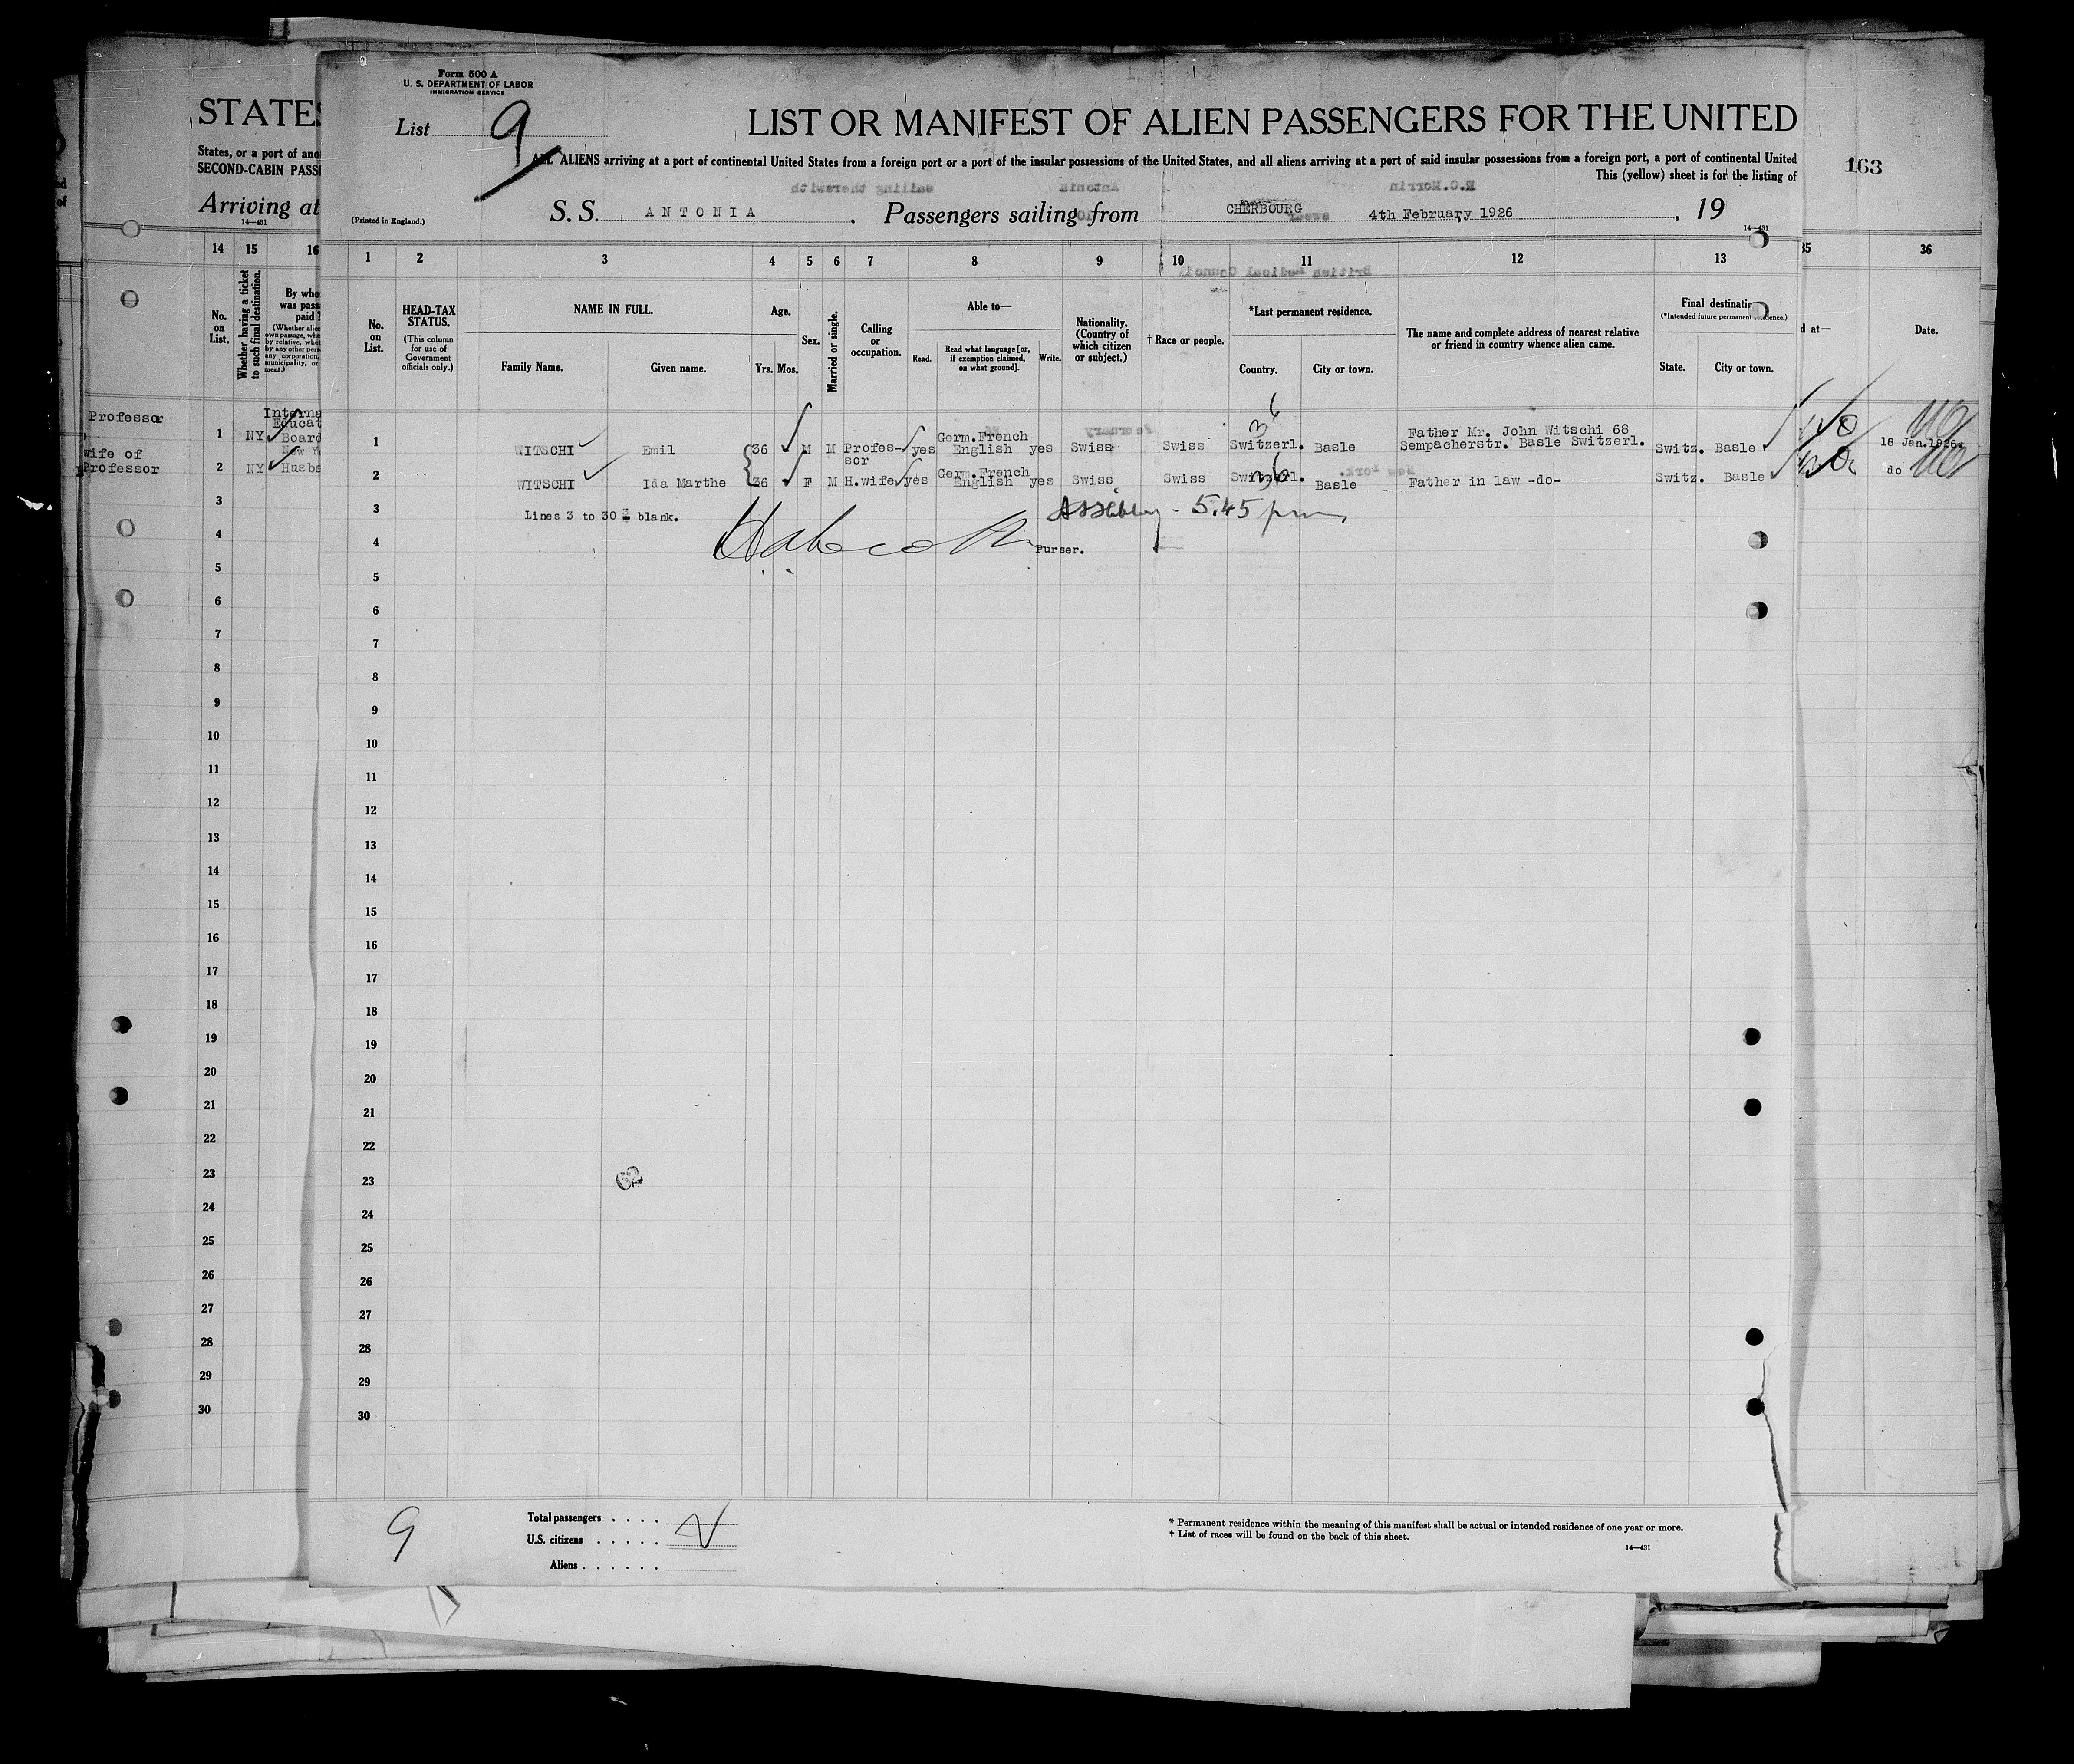 Form 500 A
U. S. DEPARTMENT OF LABOR
IMMIGRATION SERVICE
List 9
LIST OR MANIFEST OF ALIEN PASSENGERS FOR THE UNITED
ALL ALIENS arriving at a port of continental United States from a foreign port or a port of the insular possessions of the United States, and all aliens arriving at a port of said insular possessions from a foreign port, a port of continental United
This (yellow) sheet is for the listing of
(Printed in England.)
S. S. ANTONIA . Passengers sailing from CHERBOURG 4th February, 1926 , 19
14—431
STATES
States, or a port of
SECOND-CABIN
Arriving at
14—431
163
14 15 16
No. on List.
Whether having a ticket to such final destination.
By
was
paid ?
Professor
1 NY
Board
wife of
Professor
2 NY
1 2 3 4 5 6 7 8 9 10 11 12 13
No. on List.
HEAD-TAX STATUS.
(This column for use of Government officials only.)
NAME IN FULL.
Family Name. Given name.
Age.
Yrs. Mos.
Sex.
Married or single.
Calling or occupation.
Able to—
Read. Read what language [or, if exemption claimed, on what ground]. Write.
Nationality. (Country of which citizen or subject.)
† Race or people.
*Last permanent residence.
Country. City or town.
The name and complete address of nearest relative or friend in country whence alien came.
Final destination
(*Intended future permanent residence.)
State. City or town.
36
Date.
1 WITSCHI Emil 36 M M Profes-sor yes Germ.French English yes Swiss Swiss Switzerl. Basle Father Mr. John Witschi 68 Sempacherstr. Basle Switzerl. Switz. Basle
18 Jan.1926
2 WITSCHI Ida Marthe 36 F M H.wife yes Germ.French English yes Swiss Swiss Switzerl. Basle Father in law -do- Switz. Basle
do
3 Lines 3 to 30 blank.
5.45 pm
4 Purser.
5
6
7
8
9
10
11
12
13
14
15
16
17
18
19
20
21
22
23
24
25
26
27
28
29
30
3
4
5
6
7
8
9
10
11
12
13
14
15
16
17
18
19
20
21
22
23
24
25
26
27
28
29
30
9
Total passengers . . . .
U.S. citizens . . . . .
Aliens . . . . . .
* Permanent residence within the meaning of this manifest shall be actual or intended residence of one year or more.
† List of races will be found on the back of this sheet.
14—431